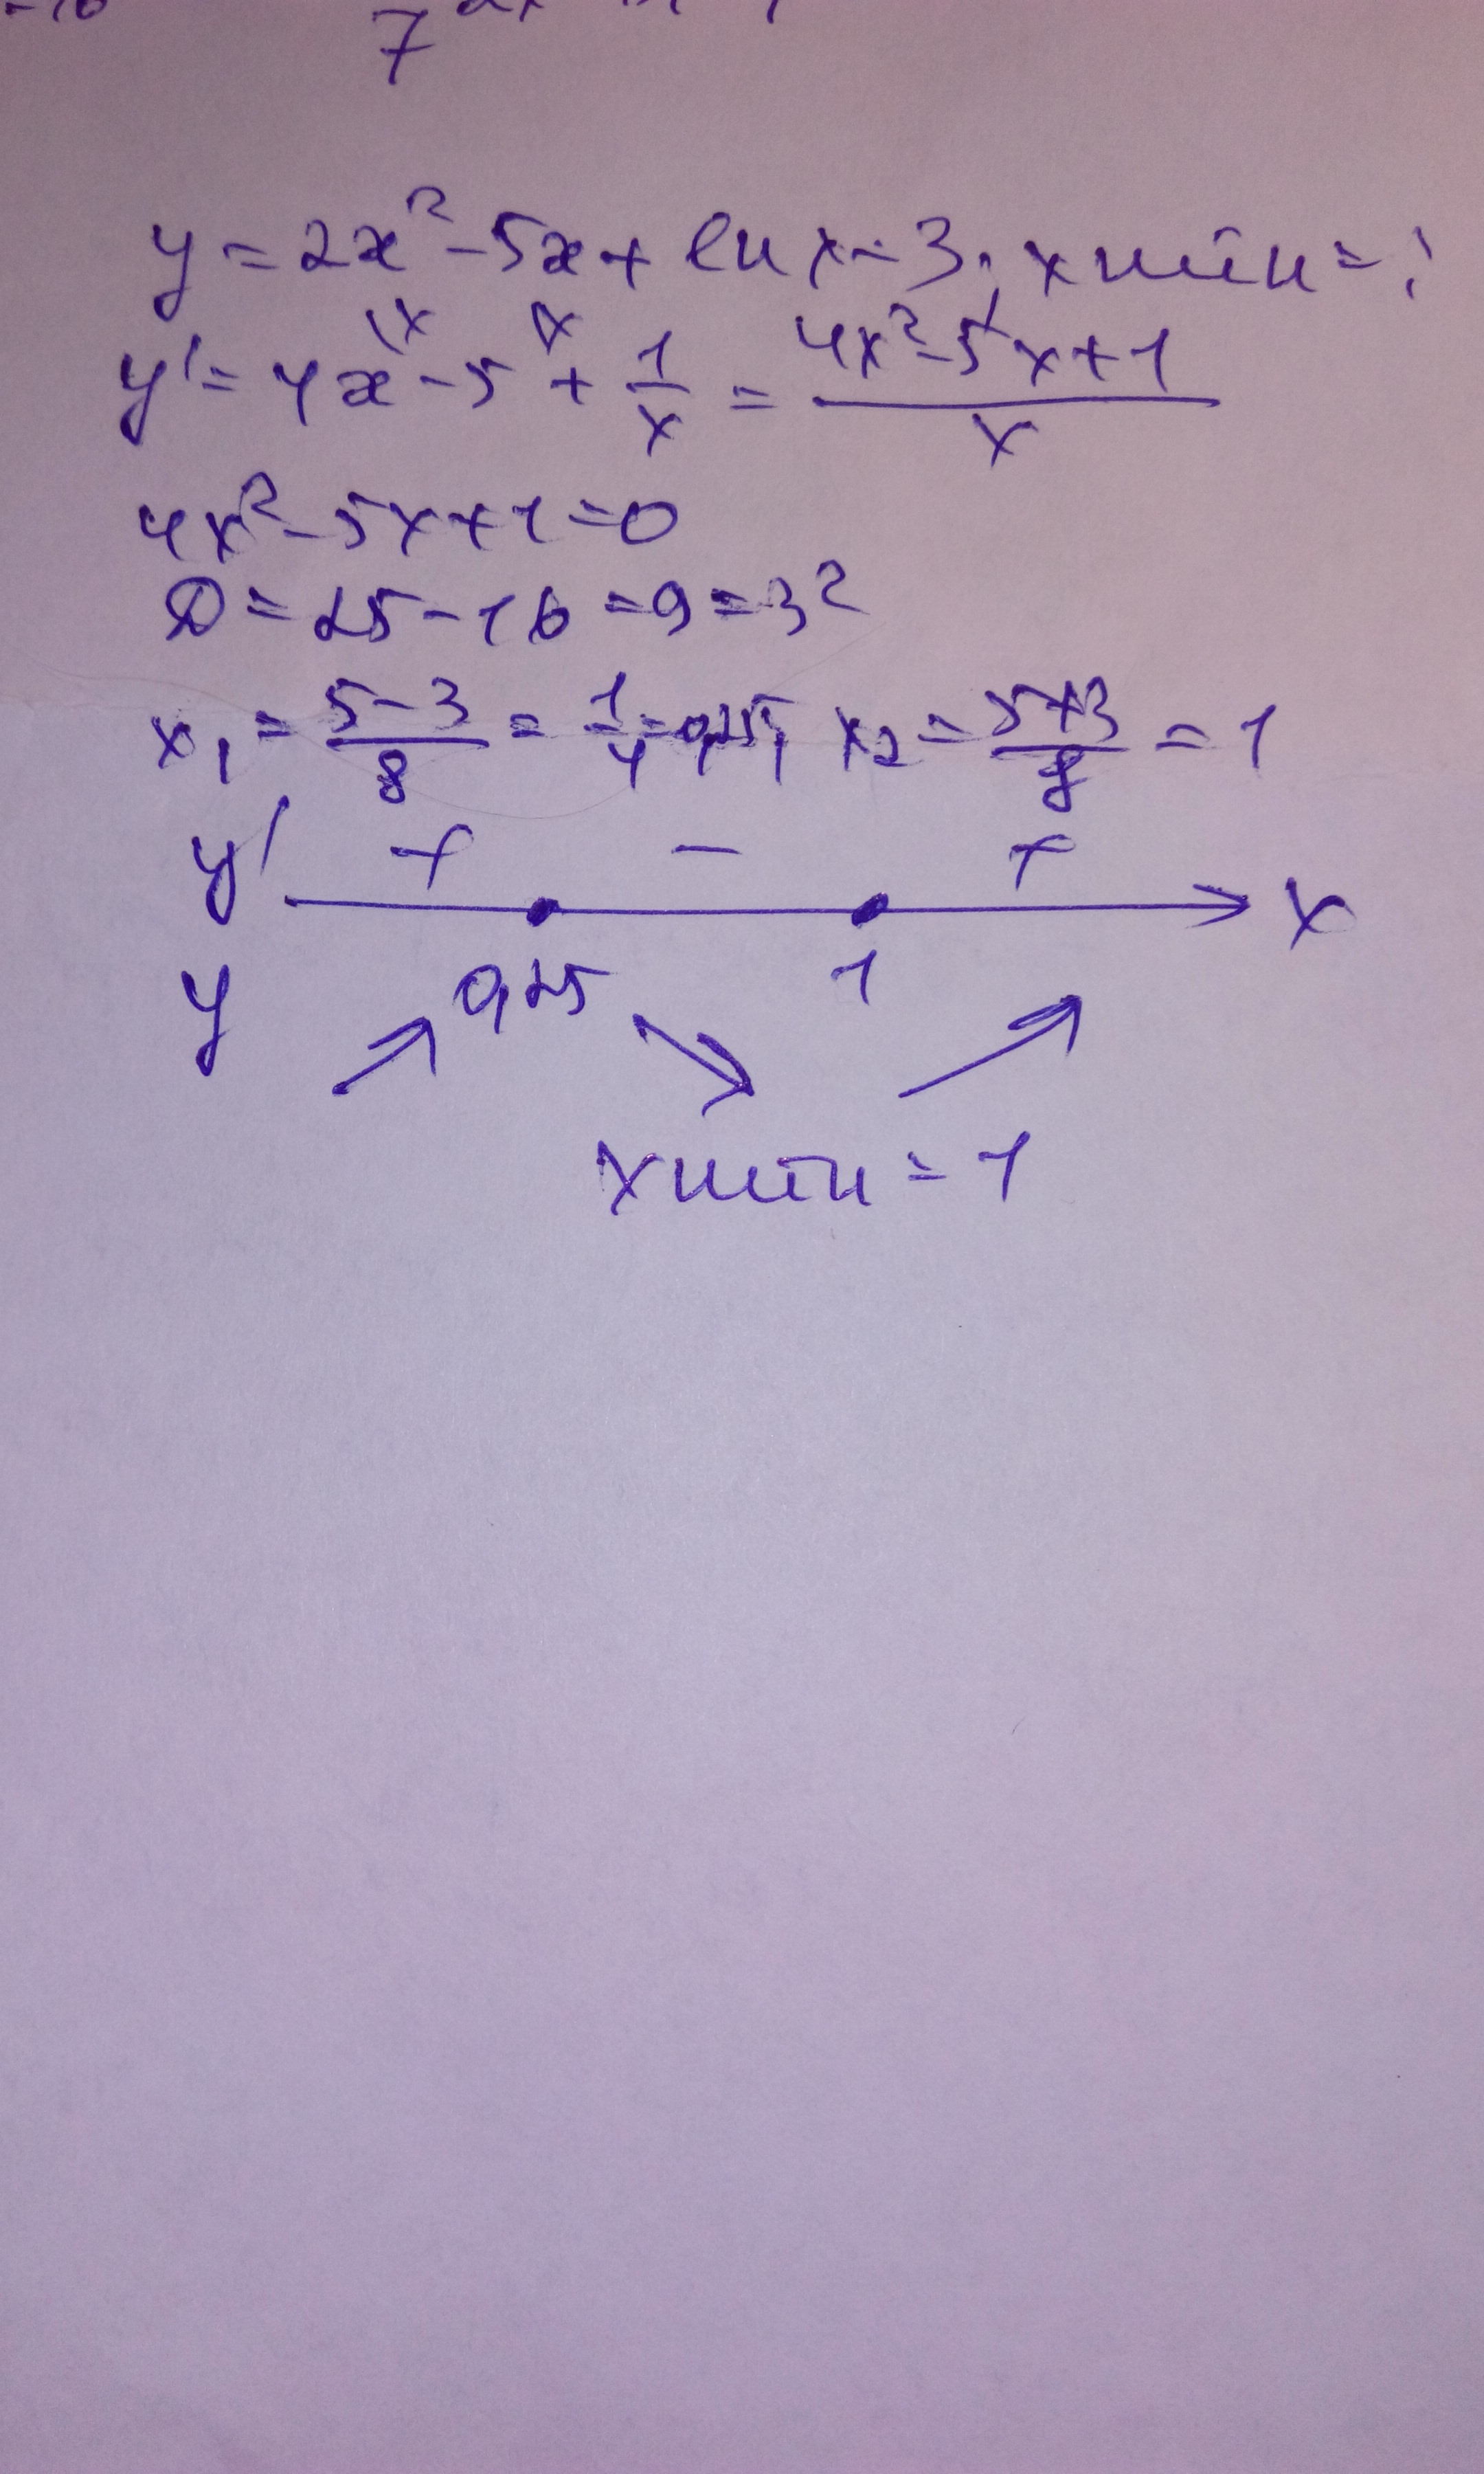 7
y = 2x² - 5x + ln x - 3; xmin = ?
y' = 4x - 5 + 1/x = (4x² - 5x + 1)/x
4x² - 5x + 1 = 0
D = 25 - 16 = 9 = 3²
x₁ = (5 - 3)/8 = 1/4 = 0,25; x₂ = (5 + 3)/8 = 1
y' + - + x
y 0,25 1
xmin = 1